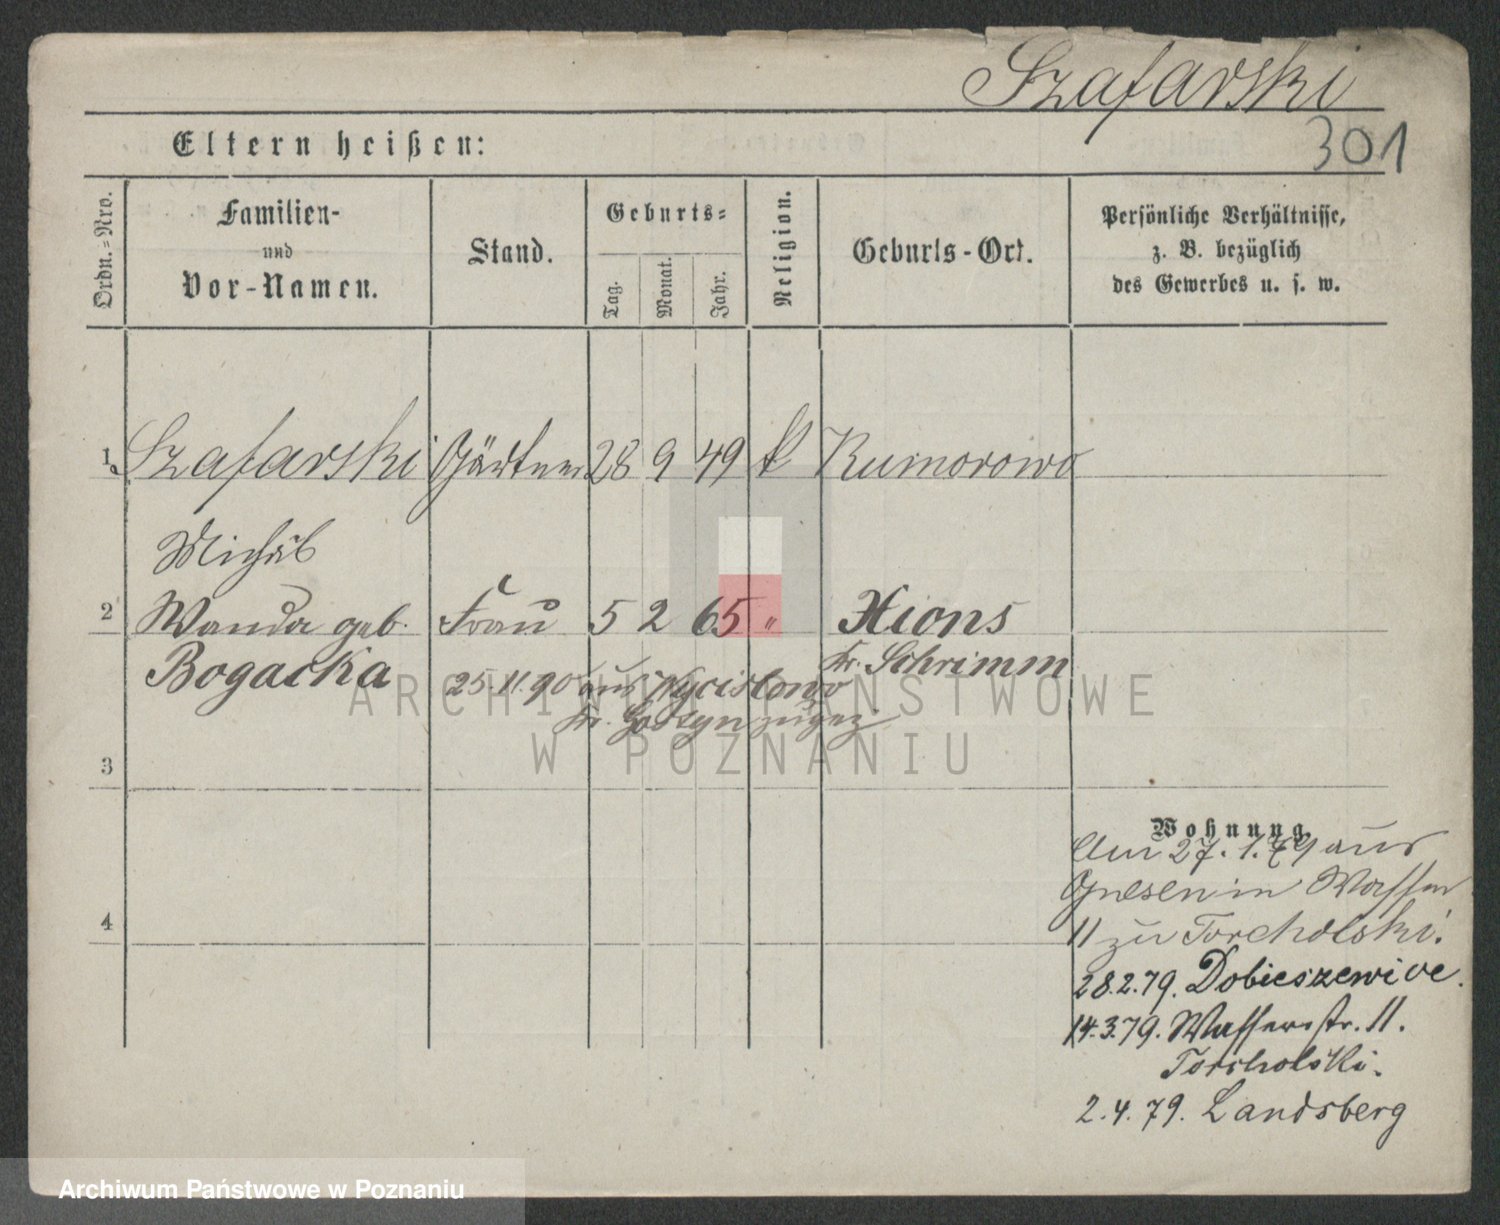 Szafarski
301
Eltern heißen:
Ordn.=Nro.
Familien-
und
Vor-Namen.
Stand.
Geburts=
Tag.
Monat.
Jahr.
Religion.
Geburts-Ort.
Persönliche Verhältnisse,
z. B. bezüglich
des Gewerbes u. s. w.
1 Szafarski Gärtner 28 9 49 k Rumorowo
Michal
2 Wanda geb. Frau 5 2 65 " Xions
Bogacka Kr. Schrimm
25.11.90 aus
Kr. Gostyn zugez.
3
4
Wohnung
Am 27.1.79 aus
Gnesen in Wasser
11 zu Torcholski.
28.2.79. Dobieszewice.
14.3.79. Wasserstr. 11.
Torcholski.
2.4.79. Landsberg
ARCHIWUM PAŃSTWOWE
W POZNANIU
Archiwum Państwowe w Poznaniu